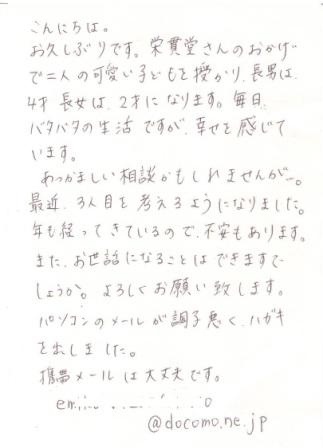 こんにちは。
お久しぶりです。栄貫堂さんのおかげ
で二人の可愛い子どもを授かり、長男は、
4才 長女は、2才になります。毎日、
バタバタの生活ですが、幸せを感じて
います。
あつかましい相談かもしれませんが…。
最近、3人目を考えるようになりました。
年も経ってきているので、不安もあります。
また、お世話になることはできますで
しょうか。よろしくお願い致します。
パソコンのメールが調子悪く、ハガキ
を出しました。
携帯メールは大丈夫です。
@docomo.ne.jp